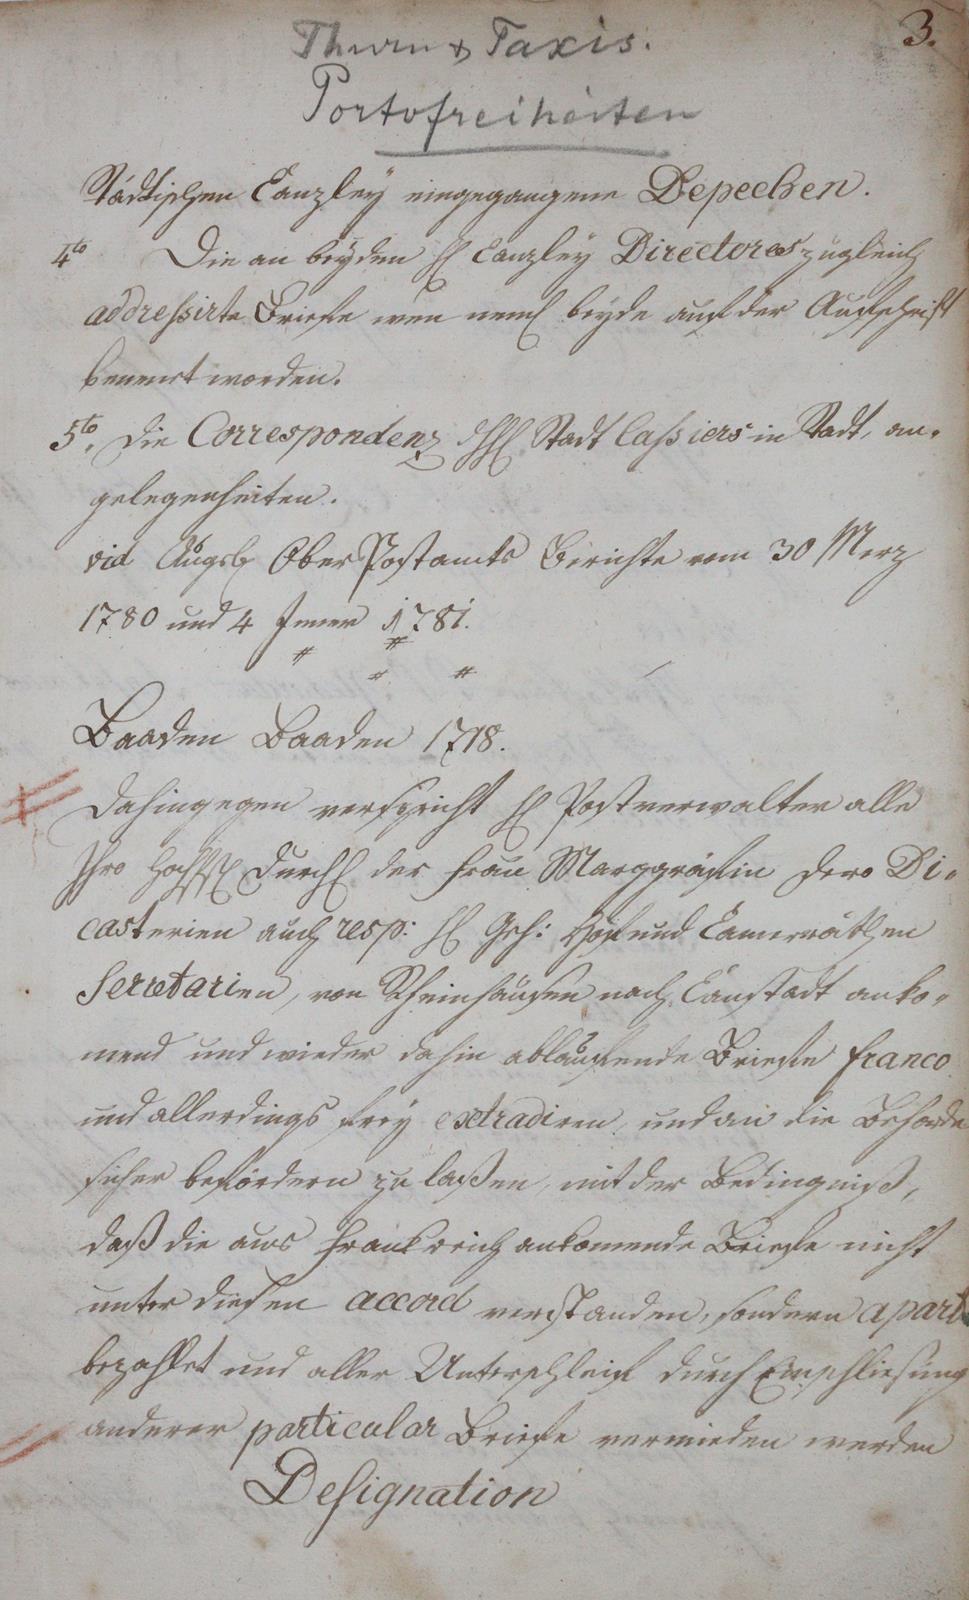 3.
Thurn & Taxis.
Portofreiheiten
Städtischen Canzley eingegangene Depechen.
4to Die an beyden H Canzley Directores zugleich
addressirte Briefe wen neml beyde auf der Aufschrift
benent worden.
5to. Die Correspondenz Stadt Cassiers in Stadt, an-
gelegenheiten.
vid Augsb Ober Postamts Berichte vom 30 Merz
1780 und 4 Jenner 1781.
Baaden Baaden 1718.
Dahingegen verspricht H Postverwalter alle
Ihro Hochfl Durchl der Frau Marggräfin dero Di-
casterien auch resp: H Geh: Hof und Camerräthen
Secretarien, von Rheinhausen nach Canstadt anko-
mend und wieder dahin ablauffende Briefe franco
und allerdings frey extradiren, und an die Behörde
sicher befördern zu laßen, mit der Bedingniß,
daß die aus Frankreich ankomende Briefe nicht
unter diesen accord verstanden, sondern apart
bezahlet und aller Unterschleif durch Einschliesung
anderer particular Briefe vermieden werden
Designation